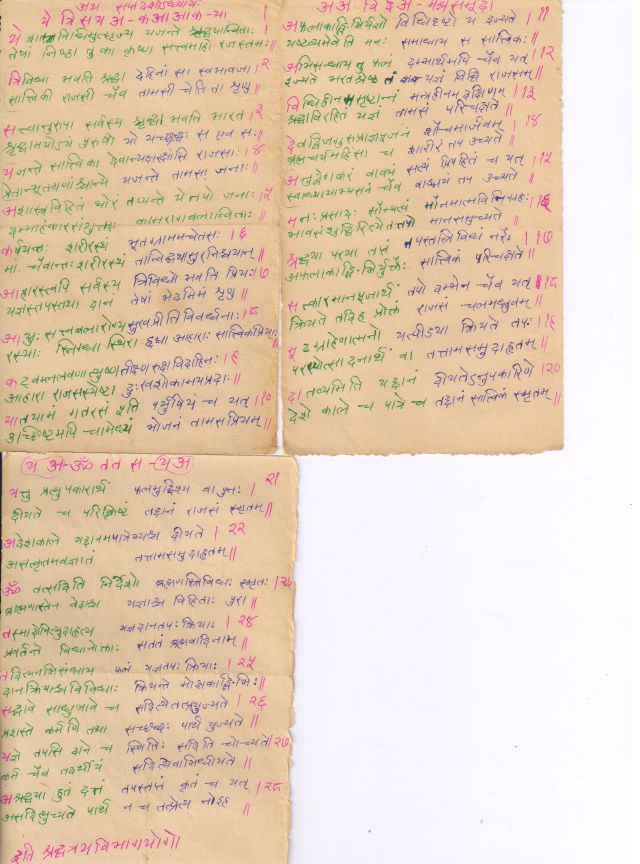 अथ सप्तदशोऽध्यायः
ये त्रि स य अ - क आ आ क - या
ये शास्त्रविधिमुत्सृज्य यजन्ते श्रद्धयान्विताः ।
तेषां निष्ठा तु का कृष्ण सत्त्वमाहो रजस्तमः ॥ १
त्रिविधा भवति श्रद्धा देहिनां सा स्वभावजा ।
सात्त्विकी राजसी चैव तामसी चेति तां शृणु ॥ २
सत्त्वानुरूपा सर्वस्य श्रद्धा भवति भारत ।
श्रद्धामयोऽयं पुरुषो यो यच्छ्रद्धः स एव सः ॥ ३
यजन्ते सात्त्विका देवान्यक्षरक्षांसि राजसाः ।
प्रेतान्भूतगणांश्चान्ये यजन्ते तामसा जनाः ॥ ४
अशास्त्रविहितं घोरं तप्यन्ते ये तपो जनाः ।
दम्भाहंकारसंयुक्ताः कामरागबलान्विताः ॥ ५
कर्षयन्तः शरीरस्थं भूतग्राममचेतसः ।
मां चैवान्तः शरीरस्थं तान्विद्ध्यासुरनिश्चयान् ॥ ६
आहारस्त्वपि सर्वस्य त्रिविधो भवति प्रियः ।
यज्ञस्तपस्तथा दानं तेषां भेदमिमं शृणु ॥ ७
आयुः सत्त्वबलारोग्यसुखप्रीतिविवर्धनाः ।
रस्याः स्निग्धाः स्थिरा हृद्या आहाराः सात्त्विकप्रियाः ॥ ८
कट्वम्ललवणात्युष्णतीक्ष्णरूक्षविदाहिनः ।
आहारा राजसस्येष्टा दुःखशोकामयप्रदाः ॥ ९
यातयामं गतरसं पूति पर्युषितं च यत् ।
उच्छिष्टमपि चामेध्यं भोजनं तामसप्रियम् ॥ १०
अ अ वि दे अ - म श्र स मू दा
अफलाकाङ्क्षिभिर्यज्ञो विधिदृष्टो य इज्यते ।
यष्टव्यमेवेति मनः समाधाय स सात्त्विकः ॥ ११
अभिसन्धाय तु फलं दम्भार्थमपि चैव यत् ।
इज्यते भरतश्रेष्ठ तं यज्ञं विद्धि राजसम् ॥ १२
विधिहीनमसृष्टान्नं मन्त्रहीनमदक्षिणम् ।
श्रद्धाविरहितं यज्ञं तामसं परिचक्षते ॥ १३
देवद्विजगुरुप्राज्ञपूजनं शौचमार्जवम् ।
ब्रह्मचर्यमहिंसा च शारीरं तप उच्यते ॥ १४
अनुद्वेगकरं वाक्यं सत्यं प्रियहितं च यत् ।
स्वाध्यायाभ्यसनं चैव वाङ्मयं तप उच्यते ॥ १५
मनः प्रसादः सौम्यत्वं मौनमात्मविनिग्रहः ।
भावसंशुद्धिरित्येतत्तपो मानसमुच्यते ॥ १६
श्रद्धया परया तप्तं तपस्तत्त्रिविधं नरैः ।
अफलाकाङ्क्षिभिर्युक्तैः सात्त्विकं परिचक्षते ॥ १७
सत्कारमानपूजार्थं तपो दम्भेन चैव यत् ।
क्रियते तदिह प्रोक्तं राजसं चलमध्रुवम् ॥ १८
मूढग्राहेणात्मनो यत्पीडया क्रियते तपः ।
परस्योत्सादनार्थं वा तत्तामसमुदाहृतम् ॥ १९
दातव्यमिति यद्दानं दीयतेऽनुपकारिणे ।
देशे काले च पात्रे च तद्दानं सात्त्विकं स्मृतम् ॥ २०
य अ - ॐ त त स - य अ
यत्तु प्रत्युपकारार्थं फलमुद्दिश्य वा पुनः ।
दीयते च परिक्लिष्टं तद्दानं राजसं स्मृतम् ॥ २१
अदेशकाले यद्दानमपात्रेभ्यश्च दीयते ।
असत्कृतमवज्ञातं तत्तामसमुदाहृतम् ॥ २२
ॐ तत्सदिति निर्देशो ब्रह्मणस्त्रिविधः स्मृतः ।
ब्राह्मणास्तेन वेदाश्च यज्ञाश्च विहिताः पुरा ॥ २३
तस्मादोमित्युदाहृत्य यज्ञदानतपःक्रियाः ।
प्रवर्तन्ते विधानोक्ताः सततं ब्रह्मवादिनाम् ॥ २४
तदित्यनभिसंधाय फलं यज्ञतपःक्रियाः ।
दानक्रियाश्च विविधाः क्रियन्ते मोक्षकाङ्क्षिभिः ॥ २५
सद्भावे साधुभावे च सदित्येतत्प्रयुज्यते ।
प्रशस्ते कर्मणि तथा सच्छब्दः पार्थ युज्यते ॥ २६
यज्ञे तपसि दाने च स्थितिः सदिति चोच्यते ।
कर्म चैव तदर्थीयं सदित्येवाभिधीयते ॥ २७
अश्रद्धया हुतं दत्तं तपस्तप्तं कृतं च यत् ।
असदित्युच्यते पार्थ न च तत्प्रेत्य नो इह ॥ २८
इति श्रद्धात्रयविभागयोगो